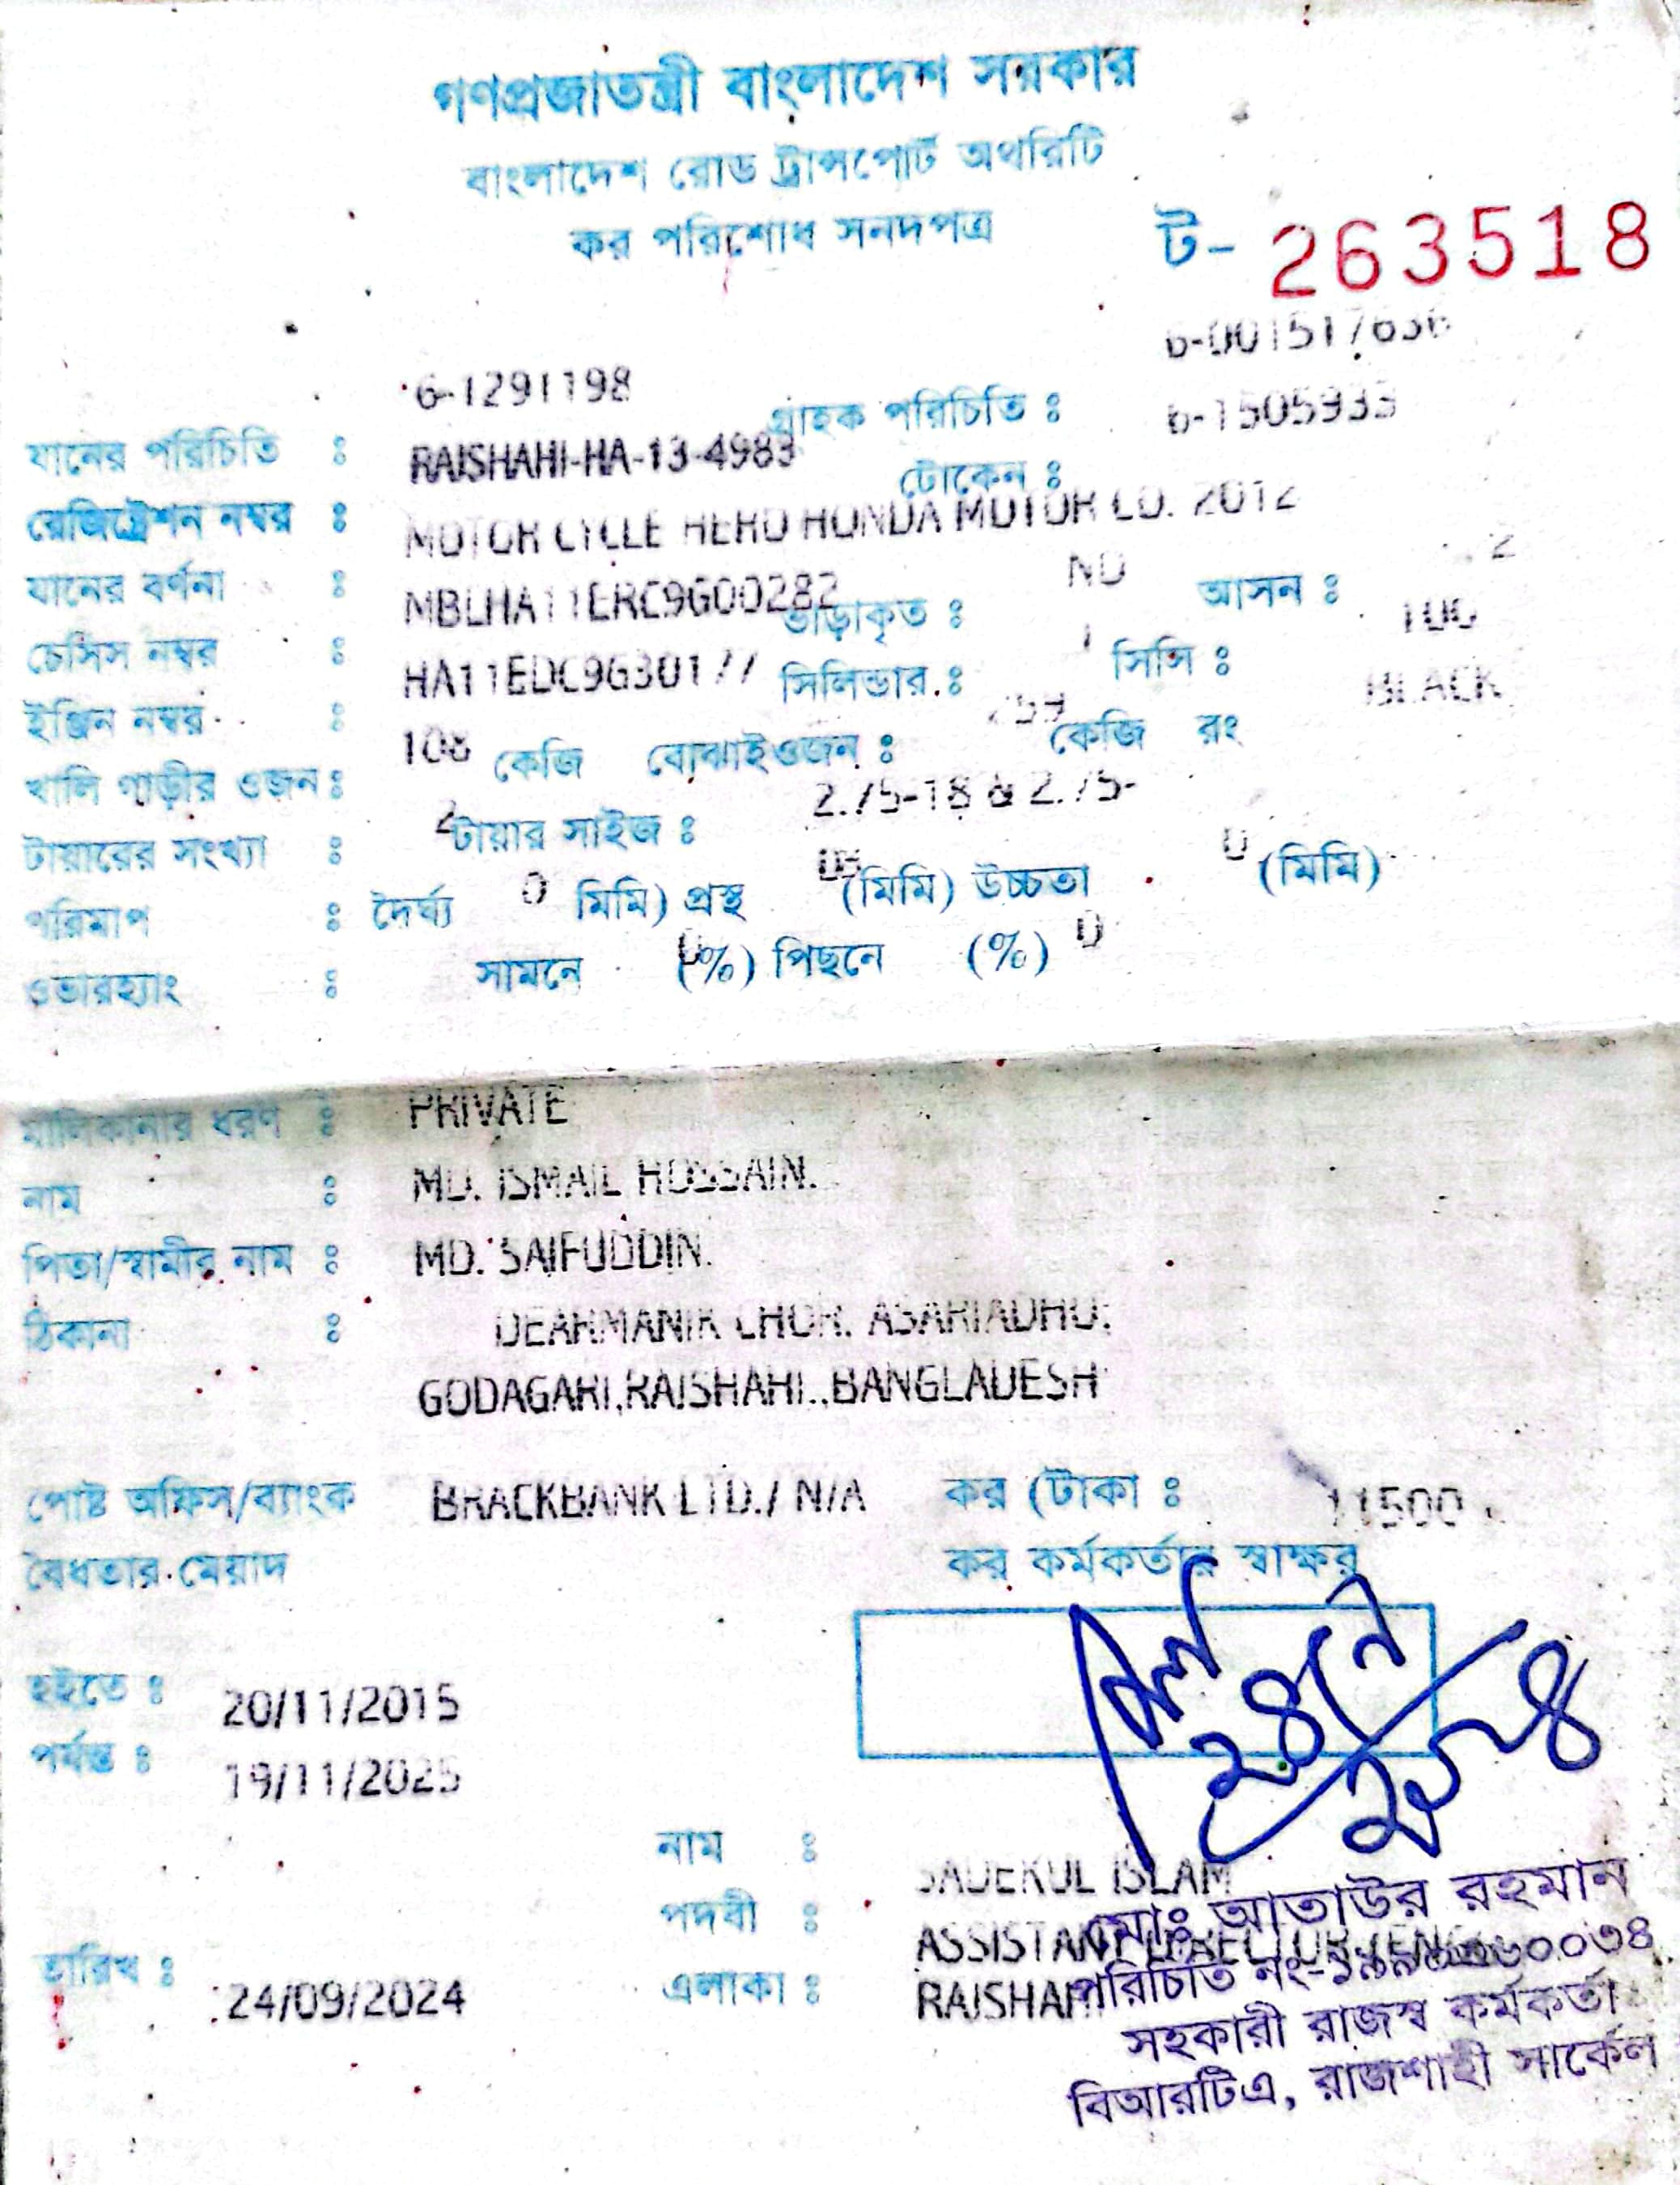 গণপ্রজাতন্ত্রী বাংলাদেশ সরকার
বাংলাদেশ রোড ট্রান্সপোর্ট অথরিটি
কর পরিশোধ সনদপত্র
ট- 263518
6-001517636
6-1291198
যানের পরিচিতি : গ্রাহক পরিচিতি : 6-1505933
রেজিষ্ট্রেশন নম্বর : RAJSHAHI-HA-13-4983 টোকেন :
যানের বর্ণনা : MOTOR CYCLE HERO HONDA MOTOR CO. 2012
চেসিস নম্বর : MBLHA11ERC9G00282 ভাড়াকৃত : NO আসন : 2
ইঞ্জিন নম্বর : HA11EDC9G30177 সিলিন্ডার : 1 সিসি : 100
খালি গাড়ীর ওজন : 108 কেজি বোঝাইওজন : কেজি রং BLACK
টায়ারের সংখ্যা : 2 টায়ার সাইজ : 2.75-18 & 2.75-
পরিমাপ : দৈর্ঘ্য 0 মিমি) প্রস্থ (মিমি) উচ্চতা 0 (মিমি)
ওভারহ্যাং : সামনে 0 (%) পিছনে (%) 0
মালিকানার ধরণ : PRIVATE
নাম : MD. ISMAIL HOSSAIN.
পিতা/স্বামীর নাম : MD. SAIFUDDIN.
ঠিকানা : DEARMANIK CHOR. ASARIADHO;
GODAGARI,RAJSHAHI.,BANGLADESH
পোষ্ট অফিস/ব্যাংক BRACKBANK LTD./ N/A কর (টাকা : 11500
বৈধতার মেয়াদ কর কর্মকর্তার স্বাক্ষর
হইতে : 20/11/2015
পর্যন্ত : 19/11/2025
নাম : SADEKUL ISLAM
পদবী : ASSISTANT DIRECTOR (ENG
তারিখ : 24/09/2024 এলাকা : RAJSHAHI
মোঃ আতাউর রহমান
পরিচিতি নং-
সহকারী রাজস্ব কর্মকর্তা
বিআরটিএ, রাজশাহী সার্কেল